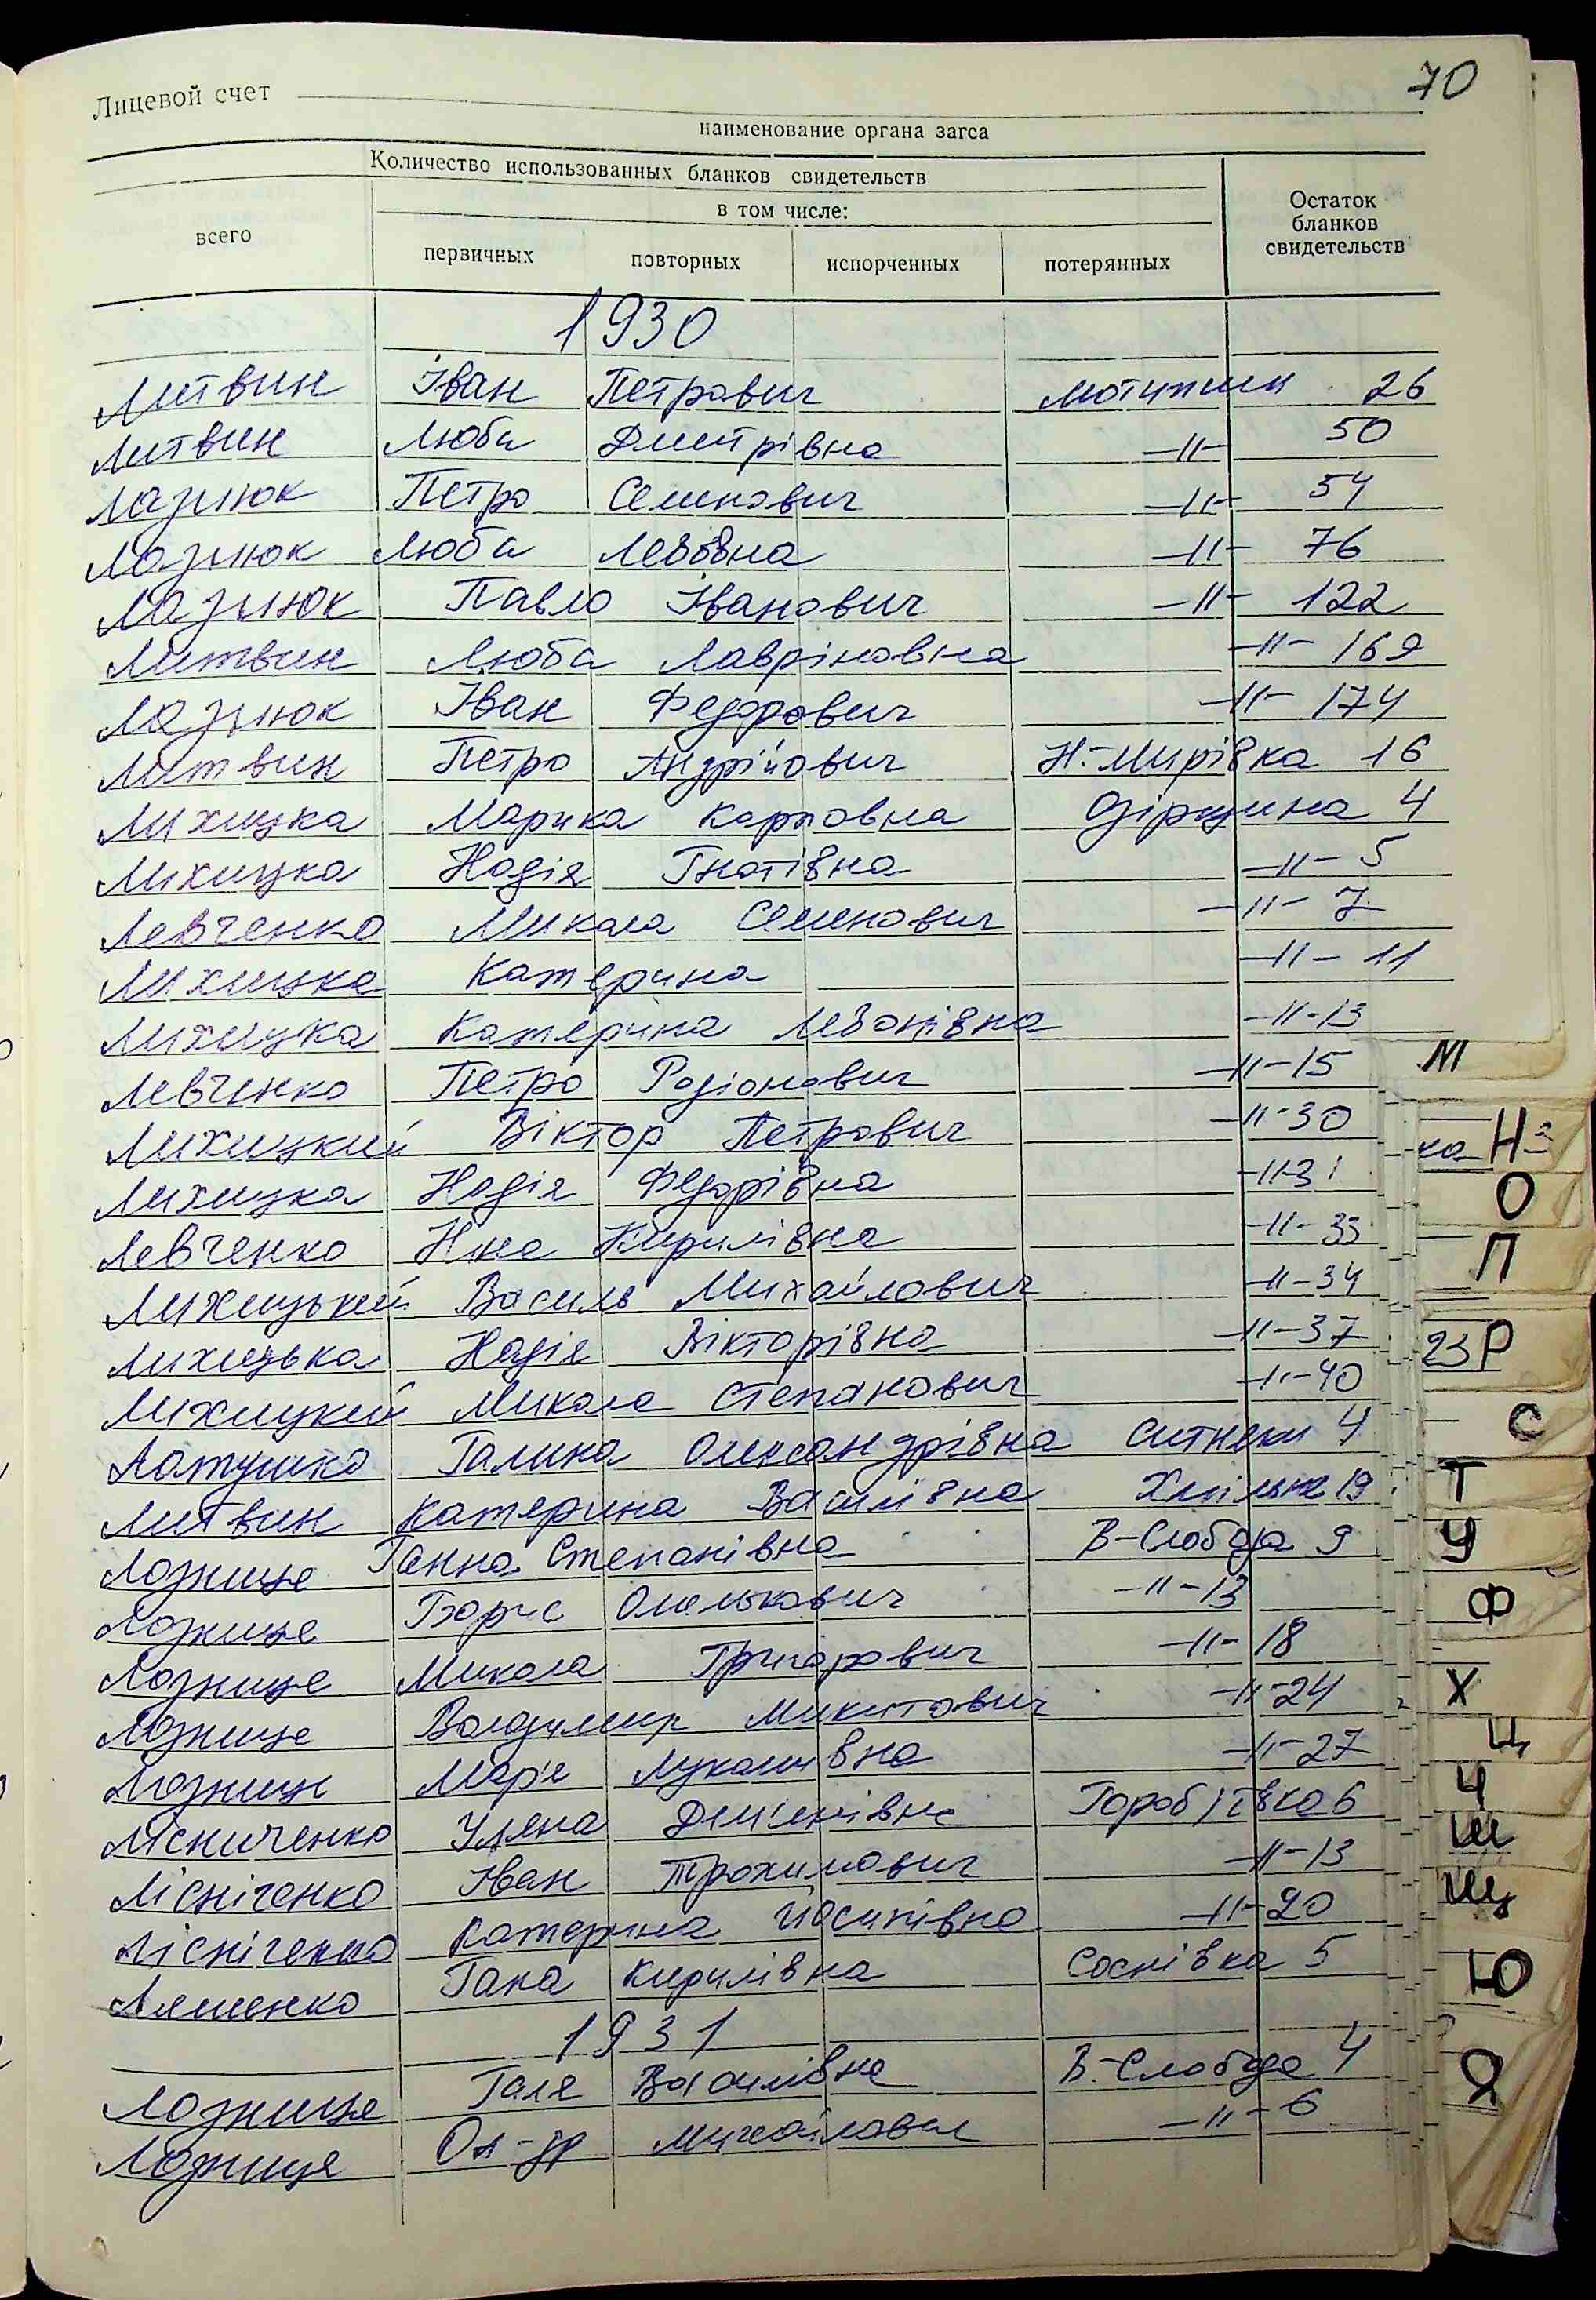 70
Лицевой счет
наименование органа загса
Количество использованных бланков свидетельств
в том числе:
всего первичных повторных испорченных потерянных Остаток бланков свидетельств
1930
Литвин Іван Петрович Мотижин 26
Литвин Люба Дмитрівна -//- 50
Лазнюк Петро Семенович -//- 54
Лазнюк Люба Левовна -//- 76
Лазнюк Павло Іванович -//- 122
Литвин Люба Лавріновна -//- 169
Лазнюк Іван Федорович -//- 174
Литвин Петро Андрійович Н.-Мирівка 16
Лихицка Марика Карповна Озірщина 4
Лихицка Надія Гнатівна -//- 5
Левченко Микола Семенович -//- 7
Лихицка Катерина -//- 11
Лихицка Катерина Левонівна -//- 13
Левченко Петро Родіонович -//- 15
Лихицкий Віктор Петрович -//- 30
Лихицка Надія Федорівна -//- 31
Левченко Ніна Кирилівна -//- 33
Лихицький Василь Михайлович -//- 34
Лихицька Надія Вікторівна -//- 37
Лихицкий Микола Степанович -//- 40
Латушко Галина Олександрівна Ситняки 4
Литвин Катерина Василівна 19
Лозниця Ганна Степанівна В-Слобода 9
Лозниця Борис Омелькович -//- 13
Лозниця Микола Григорович -//- 18
Лозниця Володимир Микитович -//- 24
Лозниця Мар'я Лукашівна -//- 27
Лісниченко Уляна Дем'янівна Горобіївка 6
Лісніченко Іван Трохимович -//- 13
Лісніченко Катерина Йосипівна -//- 20
Ляшенко Гана Кирилівна Соснівка 5
1931
Лозниця Галя Василівна В.-Слобода 4
Лозниця Ол-др Михайлович -//- 6
М
Н
О
П
23 Р
С
Т
У
Ф
Х
Ц
Ч
Ш
Щ
Ю
Я